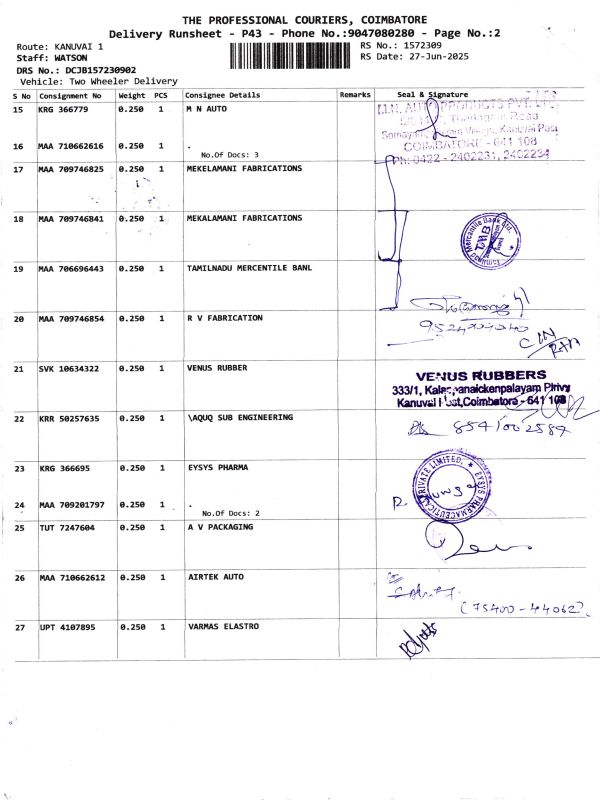 THE PROFESSIONAL COURIERS, COIMBATORE
Delivery Runsheet - P43 - Phone No.:9047080280 - Page No.:2
Route: KANUVAI 1
RS No.: 1572309
Staff: WATSON
RS Date: 27-Jun-2025
DRS No.: DCJB157230902
Vehicle: Two Wheeler Delivery
S No Consignment No Weight PCS Consignee Details Remarks Seal & Signature
15 KRG 366779 0.250 1 M N AUTO
16 MAA 710662616 0.250 1 .
No.Of Docs: 3
COIMBATORE - 641 108
Ph: 0422 - 2402231, 2402234
17 MAA 709746825 0.250 1 MEKELAMANI FABRICATIONS
18 MAA 709746841 0.250 1 MEKALAMANI FABRICATIONS
19 MAA 706696443 0.250 1 TAMILNADU MERCENTILE BANL
20 MAA 709746854 0.250 1 R V FABRICATION
21 SVK 10634322 0.250 1 VENUS RUBBER
VENUS RUBBERS
333/1, Kalappanaickenpalayam Pirivu
Kanuvai Post,Coimbatore - 641 108
22 KRR 50257635 0.250 1 \AQUQ SUB ENGINEERING
8541002589
23 KRG 366695 0.250 1 EYSYS PHARMA
EYSYS PHARMACEUTICAL PRIVATE LIMITED
24 MAA 709201797 0.250 1 .
No.Of Docs: 2
25 TUT 7247604 0.250 1 A V PACKAGING
26 MAA 710662612 0.250 1 AIRTEK AUTO
(75400-44062)
27 UPT 4107895 0.250 1 VARMAS ELASTRO